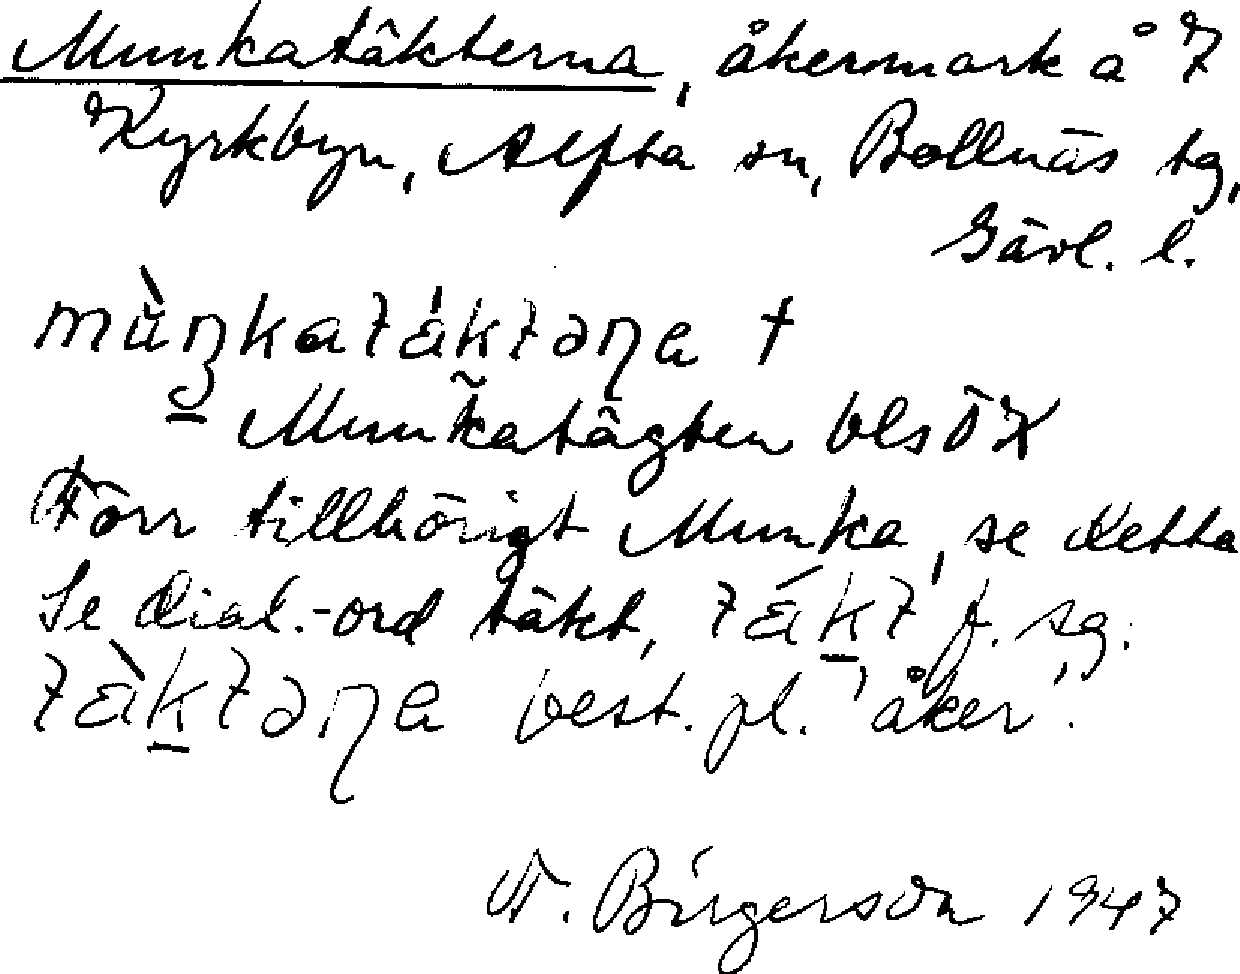 Munkatäkterna, åkermark å 7
Kyrkbyn, Alfta sn, Bollnäs tg,
Gävl. l.
mùŋkatáktəɳa †
Munkatägten
Förr tillhörigt Munka, se detta
Se dial.-ord täkt, tákt f. sg.
tàktəɳa best. pl. 'åker'.
N. Birgerson 1947